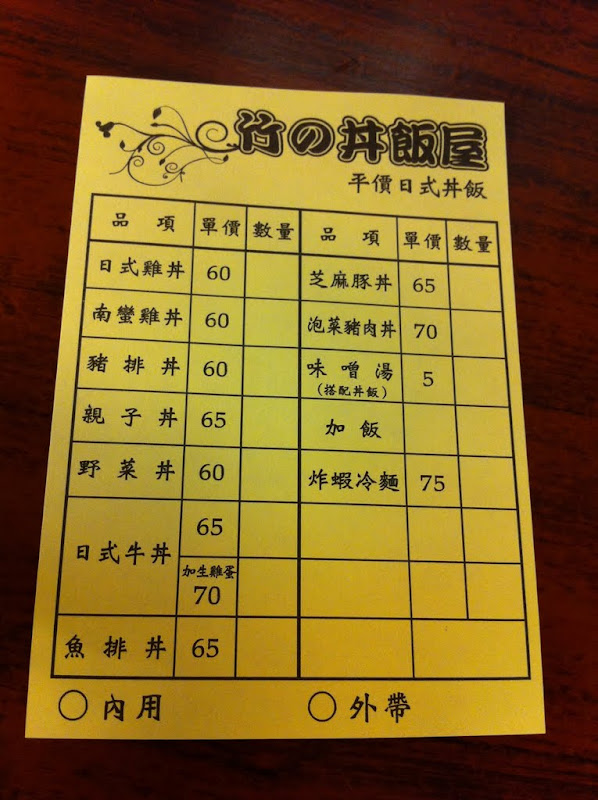 竹の丼飯屋
平價日式丼飯
品項 單價 數量 品項 單價 數量
日式雞丼 60 芝麻豚丼 65
南蠻雞丼 60 泡菜豬肉丼 70
豬排丼 60 味噌湯 5
(搭配丼飯)
親子丼 65 加飯
野菜丼 60 炸蝦冷麵 75
日式牛丼 65
加生雞蛋
70
魚排丼 65
內用 外帶